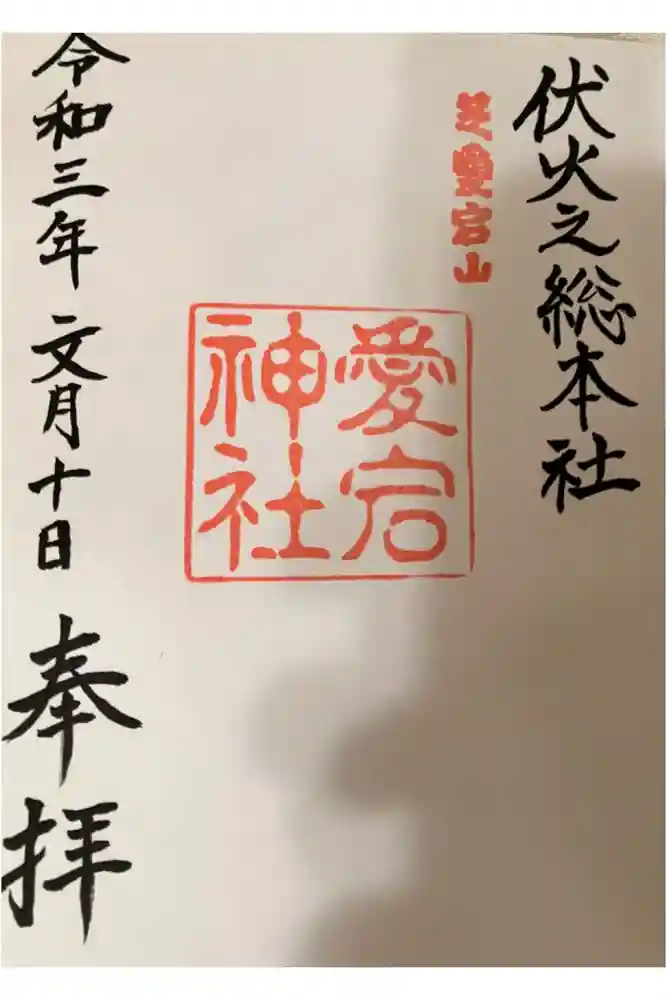 伏火之総本社
芝愛宕山
愛宕
神社
令和三年 文月十日
奉拝